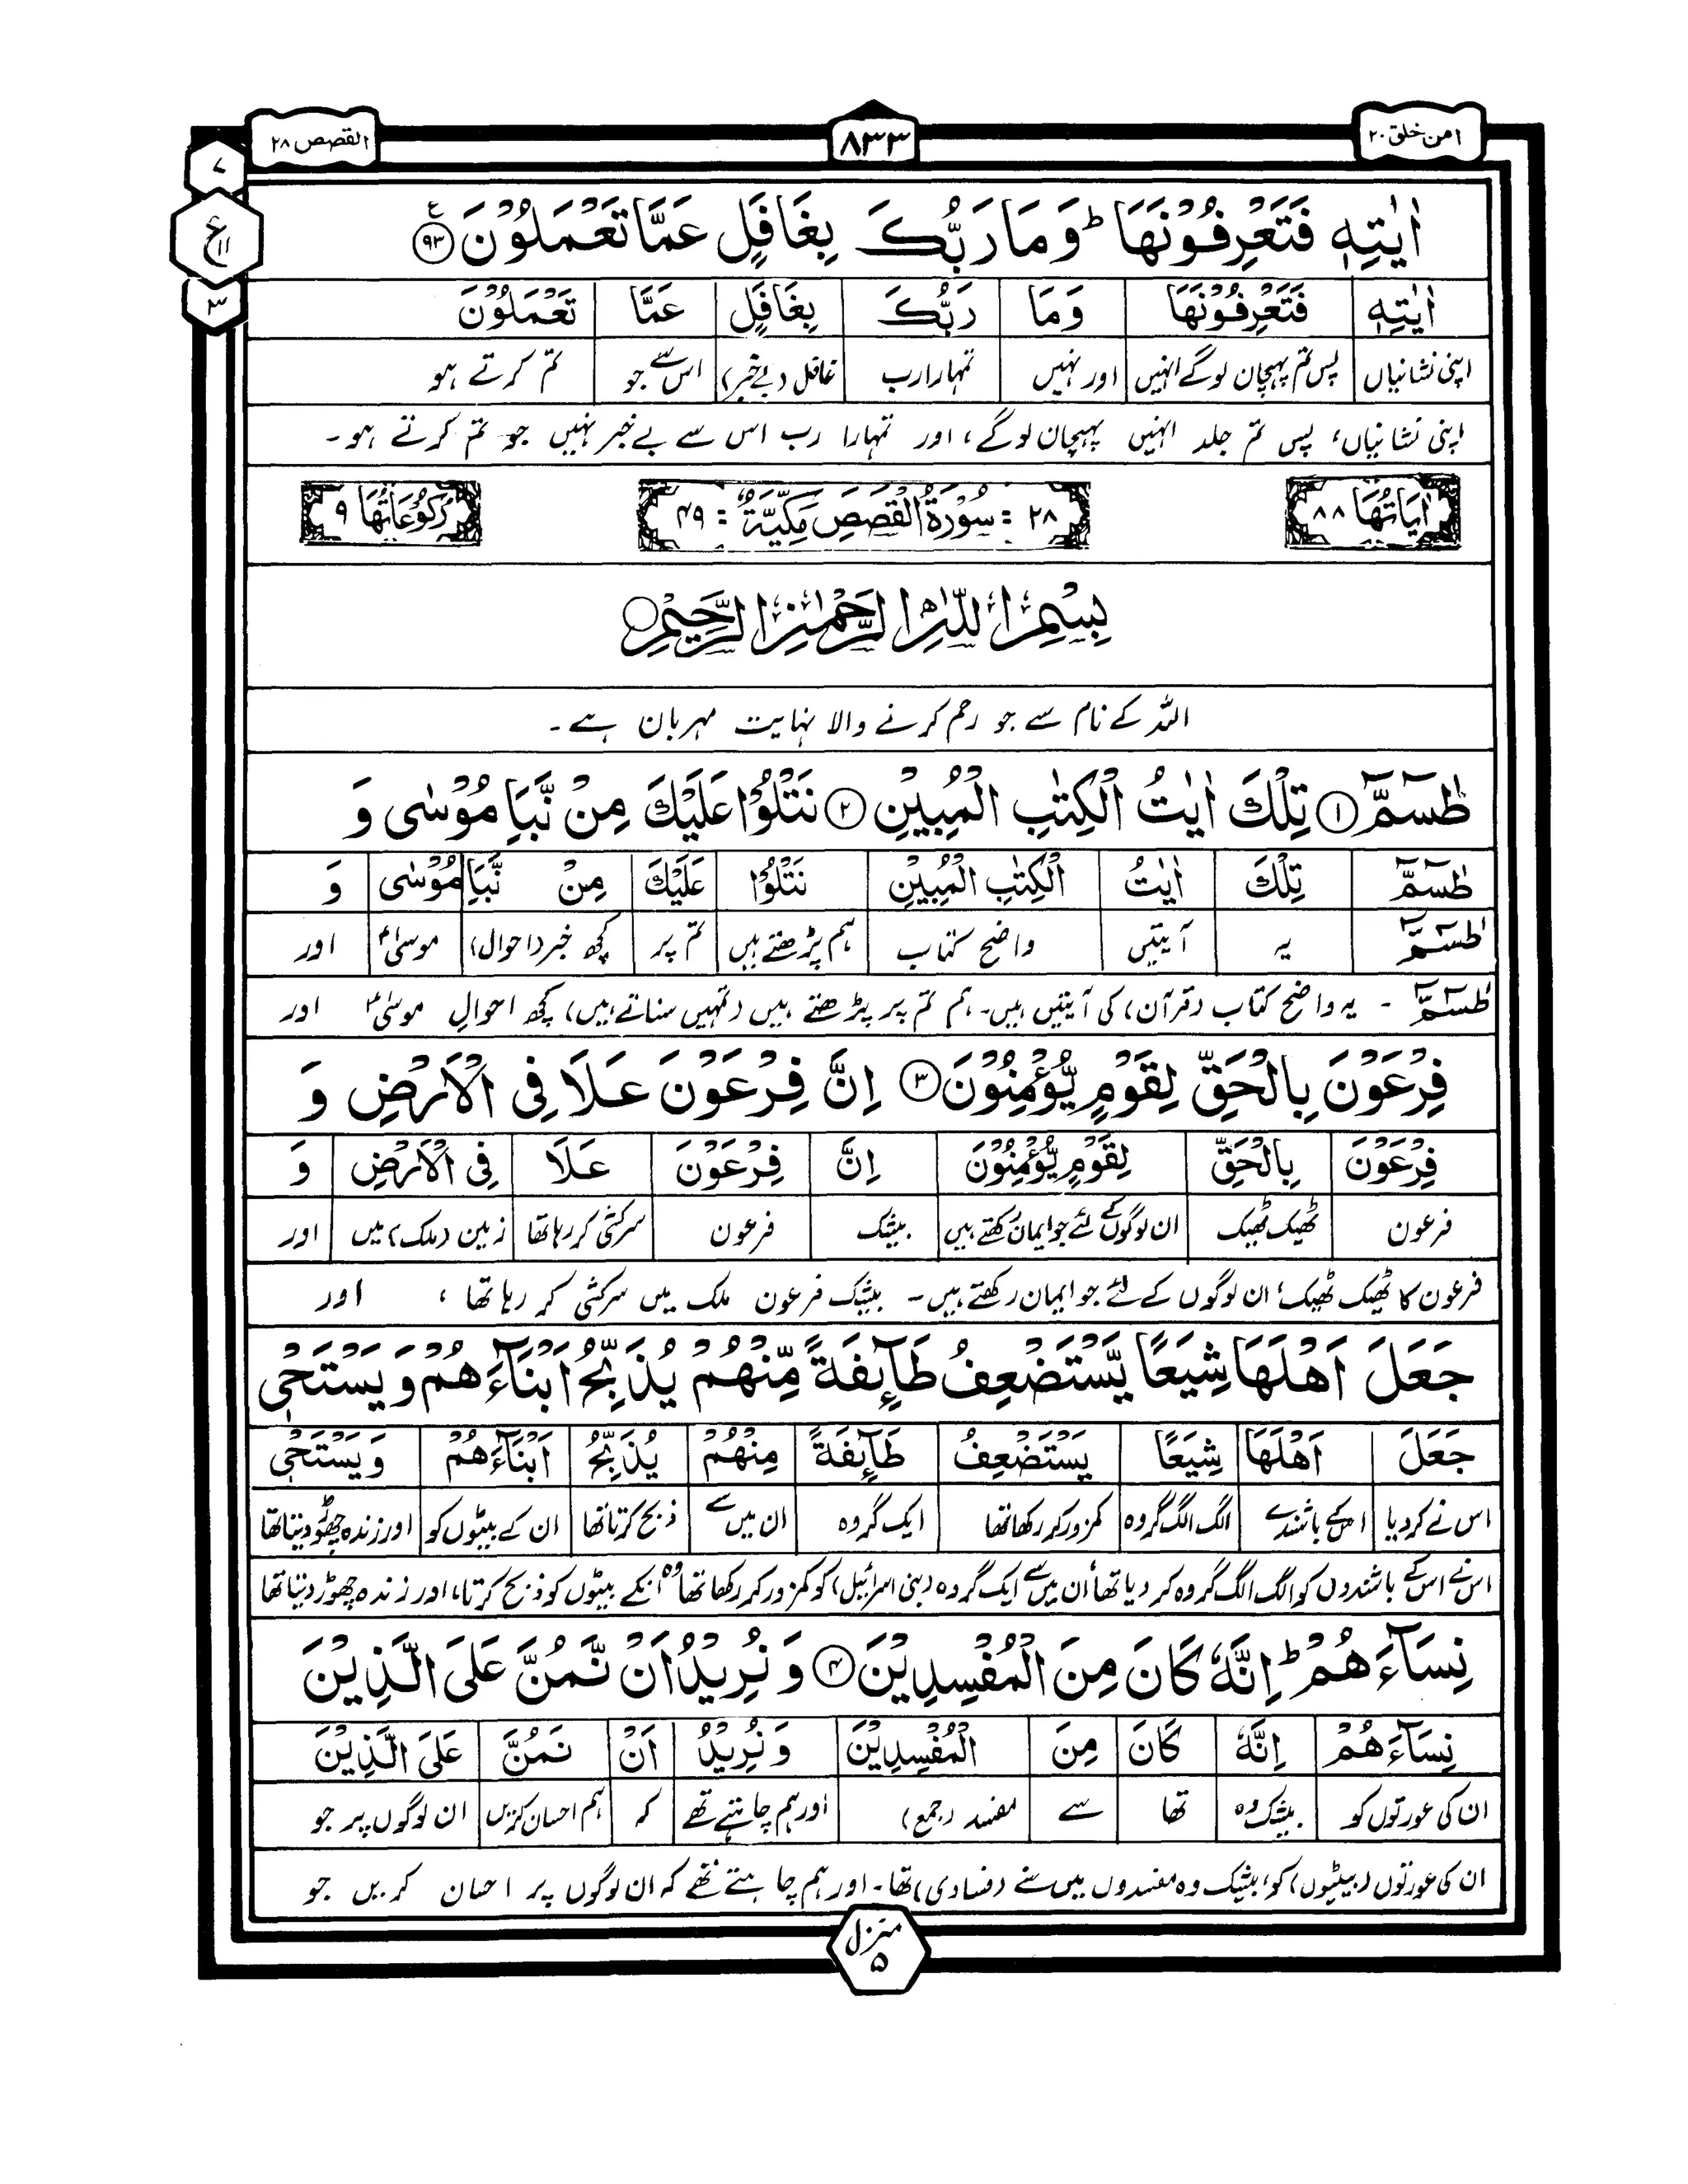 امن خلق ۲۰
۸۳۳
القصص ۲۸
۷
ع
۱۱
۳
اٰيٰتِهٖ فَتَعْرِفُوْنَهَا ؕ وَمَا رَبُّكَ بِغَافِلٍ عَمَّا تَعْمَلُوْنَ ۹۳ ع
اٰيٰتِهٖ | فَتَعْرِفُوْنَهَا | وَمَا | رَبُّكَ | بِغَافِلٍ | عَمَّا | تَعْمَلُوْنَ
اپنی نشانیاں | پس تم پہچان لوگے انہیں | اور نہیں | تمہارا رب | غافل (بے خبر) | اس سے جو | تم کرتے ہو
اپنی نشانیاں، پس تم جلد انہیں پہچان لوگے، اور تمہارا رب اس سے بے خبر نہیں جو تم کرتے ہو۔
اٰيَاتُهَا ۸۸
۲۸ = سُوْرَةُ الْقَصَصِ مَكِّيَّةٌ = ۴۹
رُكُوْعَاتُهَا ۹
بِسْمِ اللّٰهِ الرَّحْمٰنِ الرَّحِيْمِ
اللہ کے نام سے جو رحم کرنے والا نہایت مہربان ہے۔
طٰسٓمّٓ ۱ تِلْكَ اٰيٰتُ الْكِتٰبِ الْمُبِيْنِ ۲ نَتْلُوْا عَلَيْكَ مِنْ نَّبَاِ مُوْسٰى وَ
طٰسٓمّٓ | تِلْكَ | اٰيٰتُ | الْكِتٰبِ الْمُبِيْنِ | نَتْلُوْا | عَلَيْكَ | مِنْ نَّبَاِ | مُوْسٰى | وَ
طٰسٓمّٓ | یہ | آیتیں | واضح کتاب | ہم پڑھتے ہیں | تم پر | کچھ خبر (احوال) | موسیٰؑ | اور
طٰسٓمّٓ - یہ واضح کتاب (قرآن) کی آیتیں ہیں۔ ہم تم پر پڑھتے ہیں (تمہیں سناتے ہیں) کچھ احوالِ موسیٰؑ اور
فِرْعَوْنَ بِالْحَقِّ لِقَوْمٍ يُّؤْمِنُوْنَ ۳ اِنَّ فِرْعَوْنَ عَلَا فِى الْاَرْضِ وَ
فِرْعَوْنَ | بِالْحَقِّ | لِقَوْمٍ يُّؤْمِنُوْنَ | اِنَّ | فِرْعَوْنَ | عَلَا | فِى الْاَرْضِ | وَ
فرعون | ٹھیک ٹھیک | ان لوگوں کے لئے جو ایمان رکھتے ہیں | بیشک | فرعون | سرکشی کر رہا تھا | زمین (ملک) میں | اور
فرعون کا ٹھیک ٹھیک، ان لوگوں کے لئے جو ایمان رکھتے ہیں۔ بیشک فرعون ملک میں سرکشی کر رہا تھا، اور
جَعَلَ اَهْلَهَا شِيَعًا يَّسْتَضْعِفُ طَآىِٕفَةً مِّنْهُمْ يُذَبِّحُ اَبْنَآءَهُمْ وَيَسْتَحْىٖ
جَعَلَ | اَهْلَهَا | شِيَعًا | يَسْتَضْعِفُ | طَآىِٕفَةً | مِنْهُمْ | يُذَبِّحُ | اَبْنَآءَهُمْ | وَيَسْتَحْىٖ
اس نے کردیا | اسکے باشندے | الگ الگ گروہ | کمزور کر رکھا تھا | ایک گروہ | ان میں سے | ذبح کرتا تھا | ان کے بیٹوں کو | اور زندہ چھوڑ دیتا تھا
اس نے اس کے باشندوں کو الگ الگ گروہ کر دیا تھا، ان میں سے ایک گروہ (بنی اسرائیل) کو کمزور کر رکھا تھا وہ انکے بیٹوں کو ذبح کرتا، اور زندہ چھوڑ دیتا تھا
نِسَآءَهُمْ ؕ اِنَّهٗ كَانَ مِنَ الْمُفْسِدِيْنَ ۴ وَنُرِيْدُ اَنْ نَّمُنَّ عَلَى الَّذِيْنَ
نِسَآءَهُمْ | اِنَّهٗ | كَانَ | مِنَ | الْمُفْسِدِيْنَ | وَنُرِيْدُ | اَنْ | نَمُنَّ | عَلَى الَّذِيْنَ
ان کی عورتوں کو | بیشک وہ | تھا | سے | مفسد (جمع) | اور ہم چاہتے تھے | کہ | ہم احسان کریں | ان لوگوں پر جو
ان کی عورتوں (بیٹیوں) کو، بیشک وہ مفسدوں میں سے (فسادی) تھا۔ اور ہم چاہتے تھے کہ ان لوگوں پر احسان کریں جو
منزل
۵